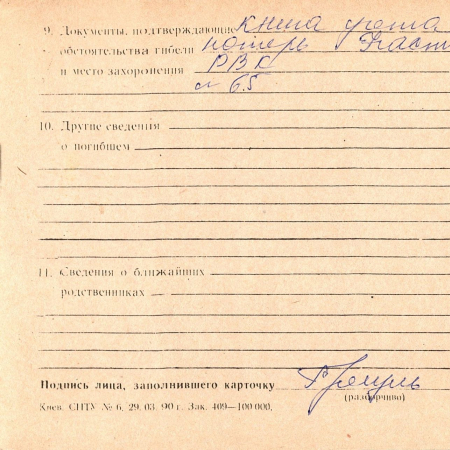 9. Документы, подтверждающие Книга учета
обстоятельства гибели потерь
и место захоронения РВК
65
10. Другие сведения
о погибшем
11. Сведения о ближайших
родственниках
Подпись лица, заполнившего карточку
(разборчиво)
Киев. СПТУ № 6, 29. 03. 90 г. Зак. 409—100 000.